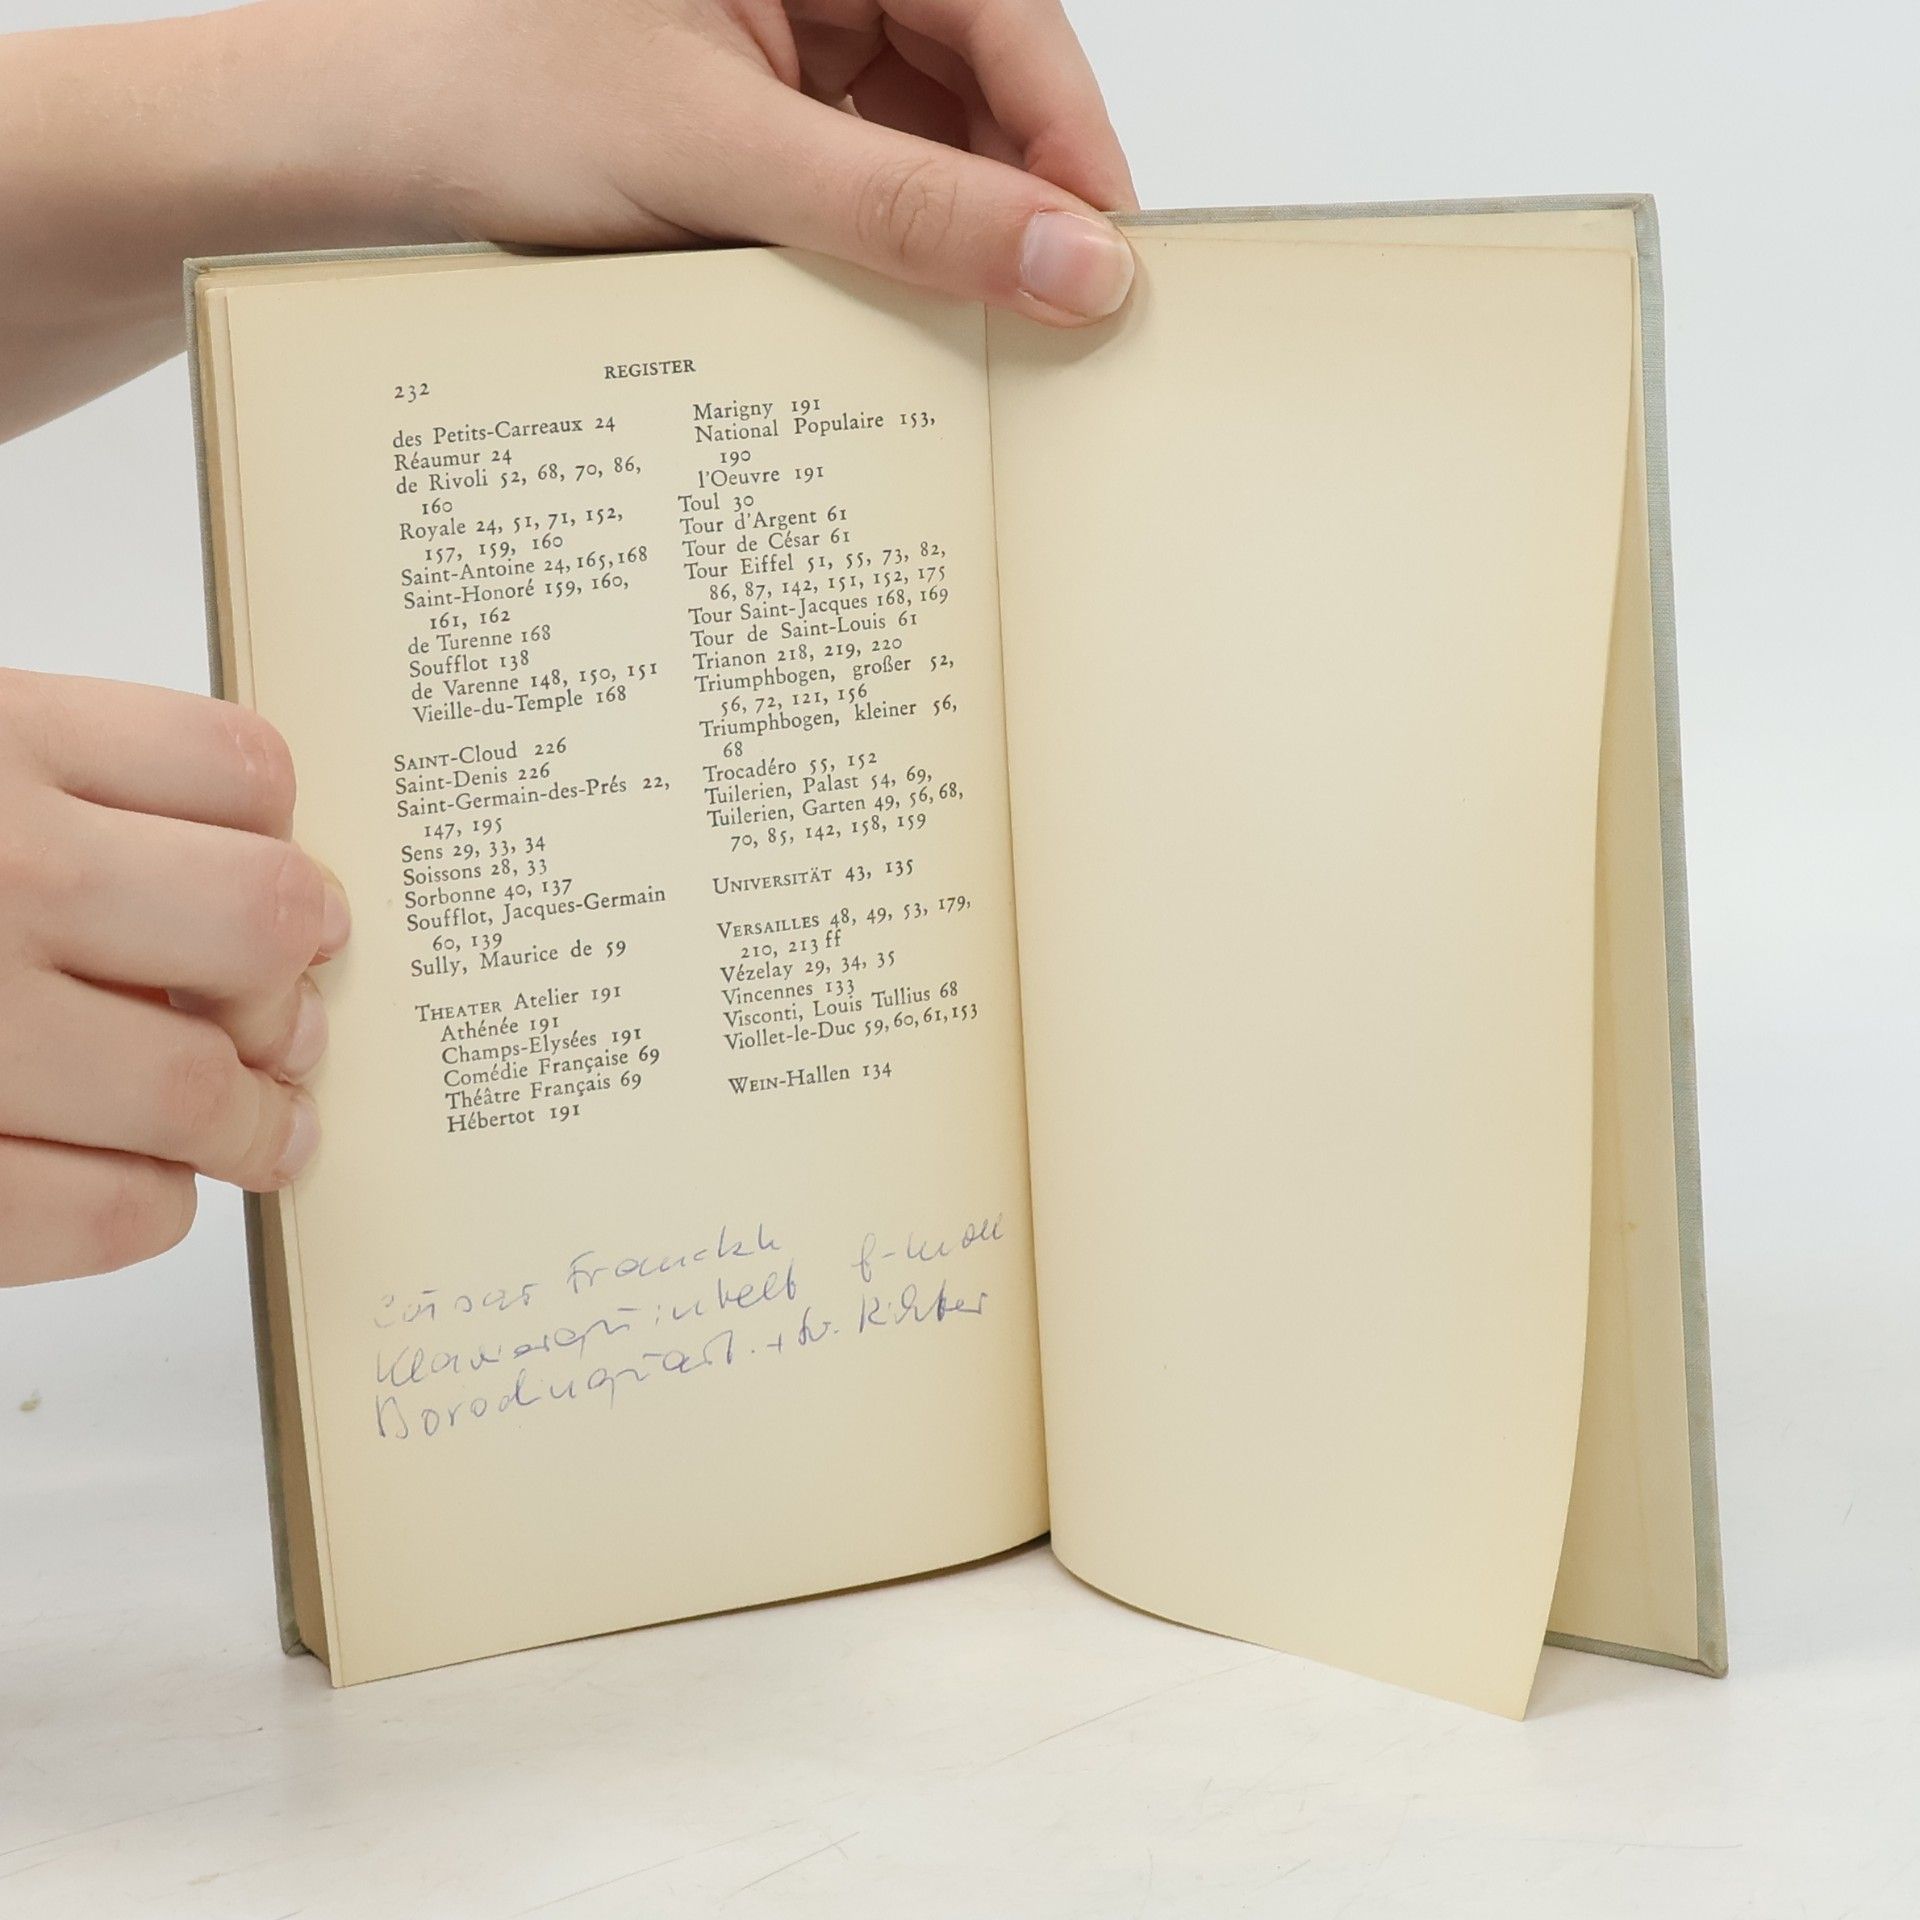 232
REGISTER
des Petits-Carreaux 24
Réaumur 24
de Rivoli 52, 68, 70, 86,
160
Royale 24, 51, 71, 152,
157, 159, 160
Saint-Antoine 24, 165, 168
Saint-Honoré 159, 160,
161, 162
de Turenne 168
Soufflot 138
de Varenne 148, 150, 151
Vieille-du-Temple 168
SAINT-Cloud 226
Saint-Denis 226
Saint-Germain-des-Prés 22,
147, 195
Sens 29, 33, 34
Soissons 28, 33
Sorbonne 40, 137
Soufflot, Jacques-Germain
60, 139
Sully, Maurice de 59
THEATER Atelier 191
Athénée 191
Champs-Elysées 191
Comédie Française 69
Théâtre Français 69
Hébertot 191
Marigny 191
National Populaire 153,
190
l'Oeuvre 191
Toul 30
Tour d'Argent 61
Tour de César 61
Tour Eiffel 51, 55, 73, 82,
86, 87, 142, 151, 152, 175
Tour Saint-Jacques 168, 169
Tour de Saint-Louis 61
Trianon 218, 219, 220
Triumphbogen, großer 52,
56, 72, 121, 156
Triumphbogen, kleiner 56,
68
Trocadéro 55, 152
Tuilerien, Palast 54, 69,
Tuilerien, Garten 49, 56, 68,
70, 85, 142, 158, 159
UNIVERSITÄT 43, 135
VERSAILLES 48, 49, 53, 179,
210, 213 ff
Vézelay 29, 34, 35
Vincennes 133
Visconti, Louis Tullius 68
Viollet-le-Duc 59, 60, 61, 153
WEIN-Hallen 134
Franckh
Klavierquintett f-moll
Borodinquart. + Sv. Richter